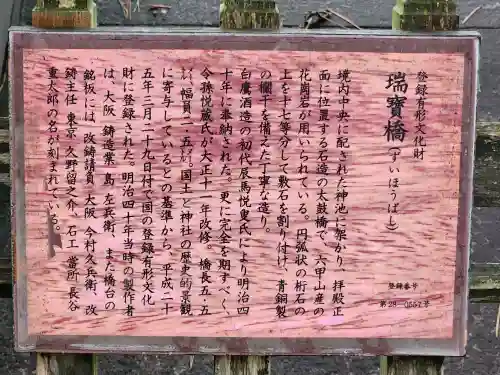 登録有形文化財
瑞寶橋(ずいほうばし)
登録番号
第28-0552号
境内中央に配された神池に架かり、拝殿正
面に位置する石造の太鼓橋で、六甲山産の
花崗岩が用いられている。円弧状の桁石の
上を十七等分して敷石を割り付け、青銅製
の欄干を備えた丁寧な造り。
白鷹酒造の初代辰馬悦叟氏により明治四
十年に奉納された。更に完全を期すべく、
令孫悦蔵氏が大正十一年改修。橋長五・五
㍍、幅員二・五㍍。国土と神社の歴史的景観
に寄与しているとの基準から、平成二十
五年三月二十九日付で国の登録有形文化
財に登録された。明治四十年当時の製作者
は、大阪 鋳造業 島 左兵衛、また橋台の
銘板には、改鋳請負 大阪 今村久兵衛、改
鋳主任 東京 久野留之介、石工 當所 長谷
重太郎の名が刻まれている。